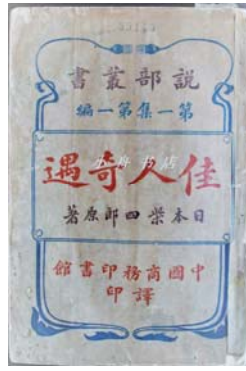 説部叢書
第一集第一編
佳人奇遇
日本柴四郎原著
中國商務印書館
譯印